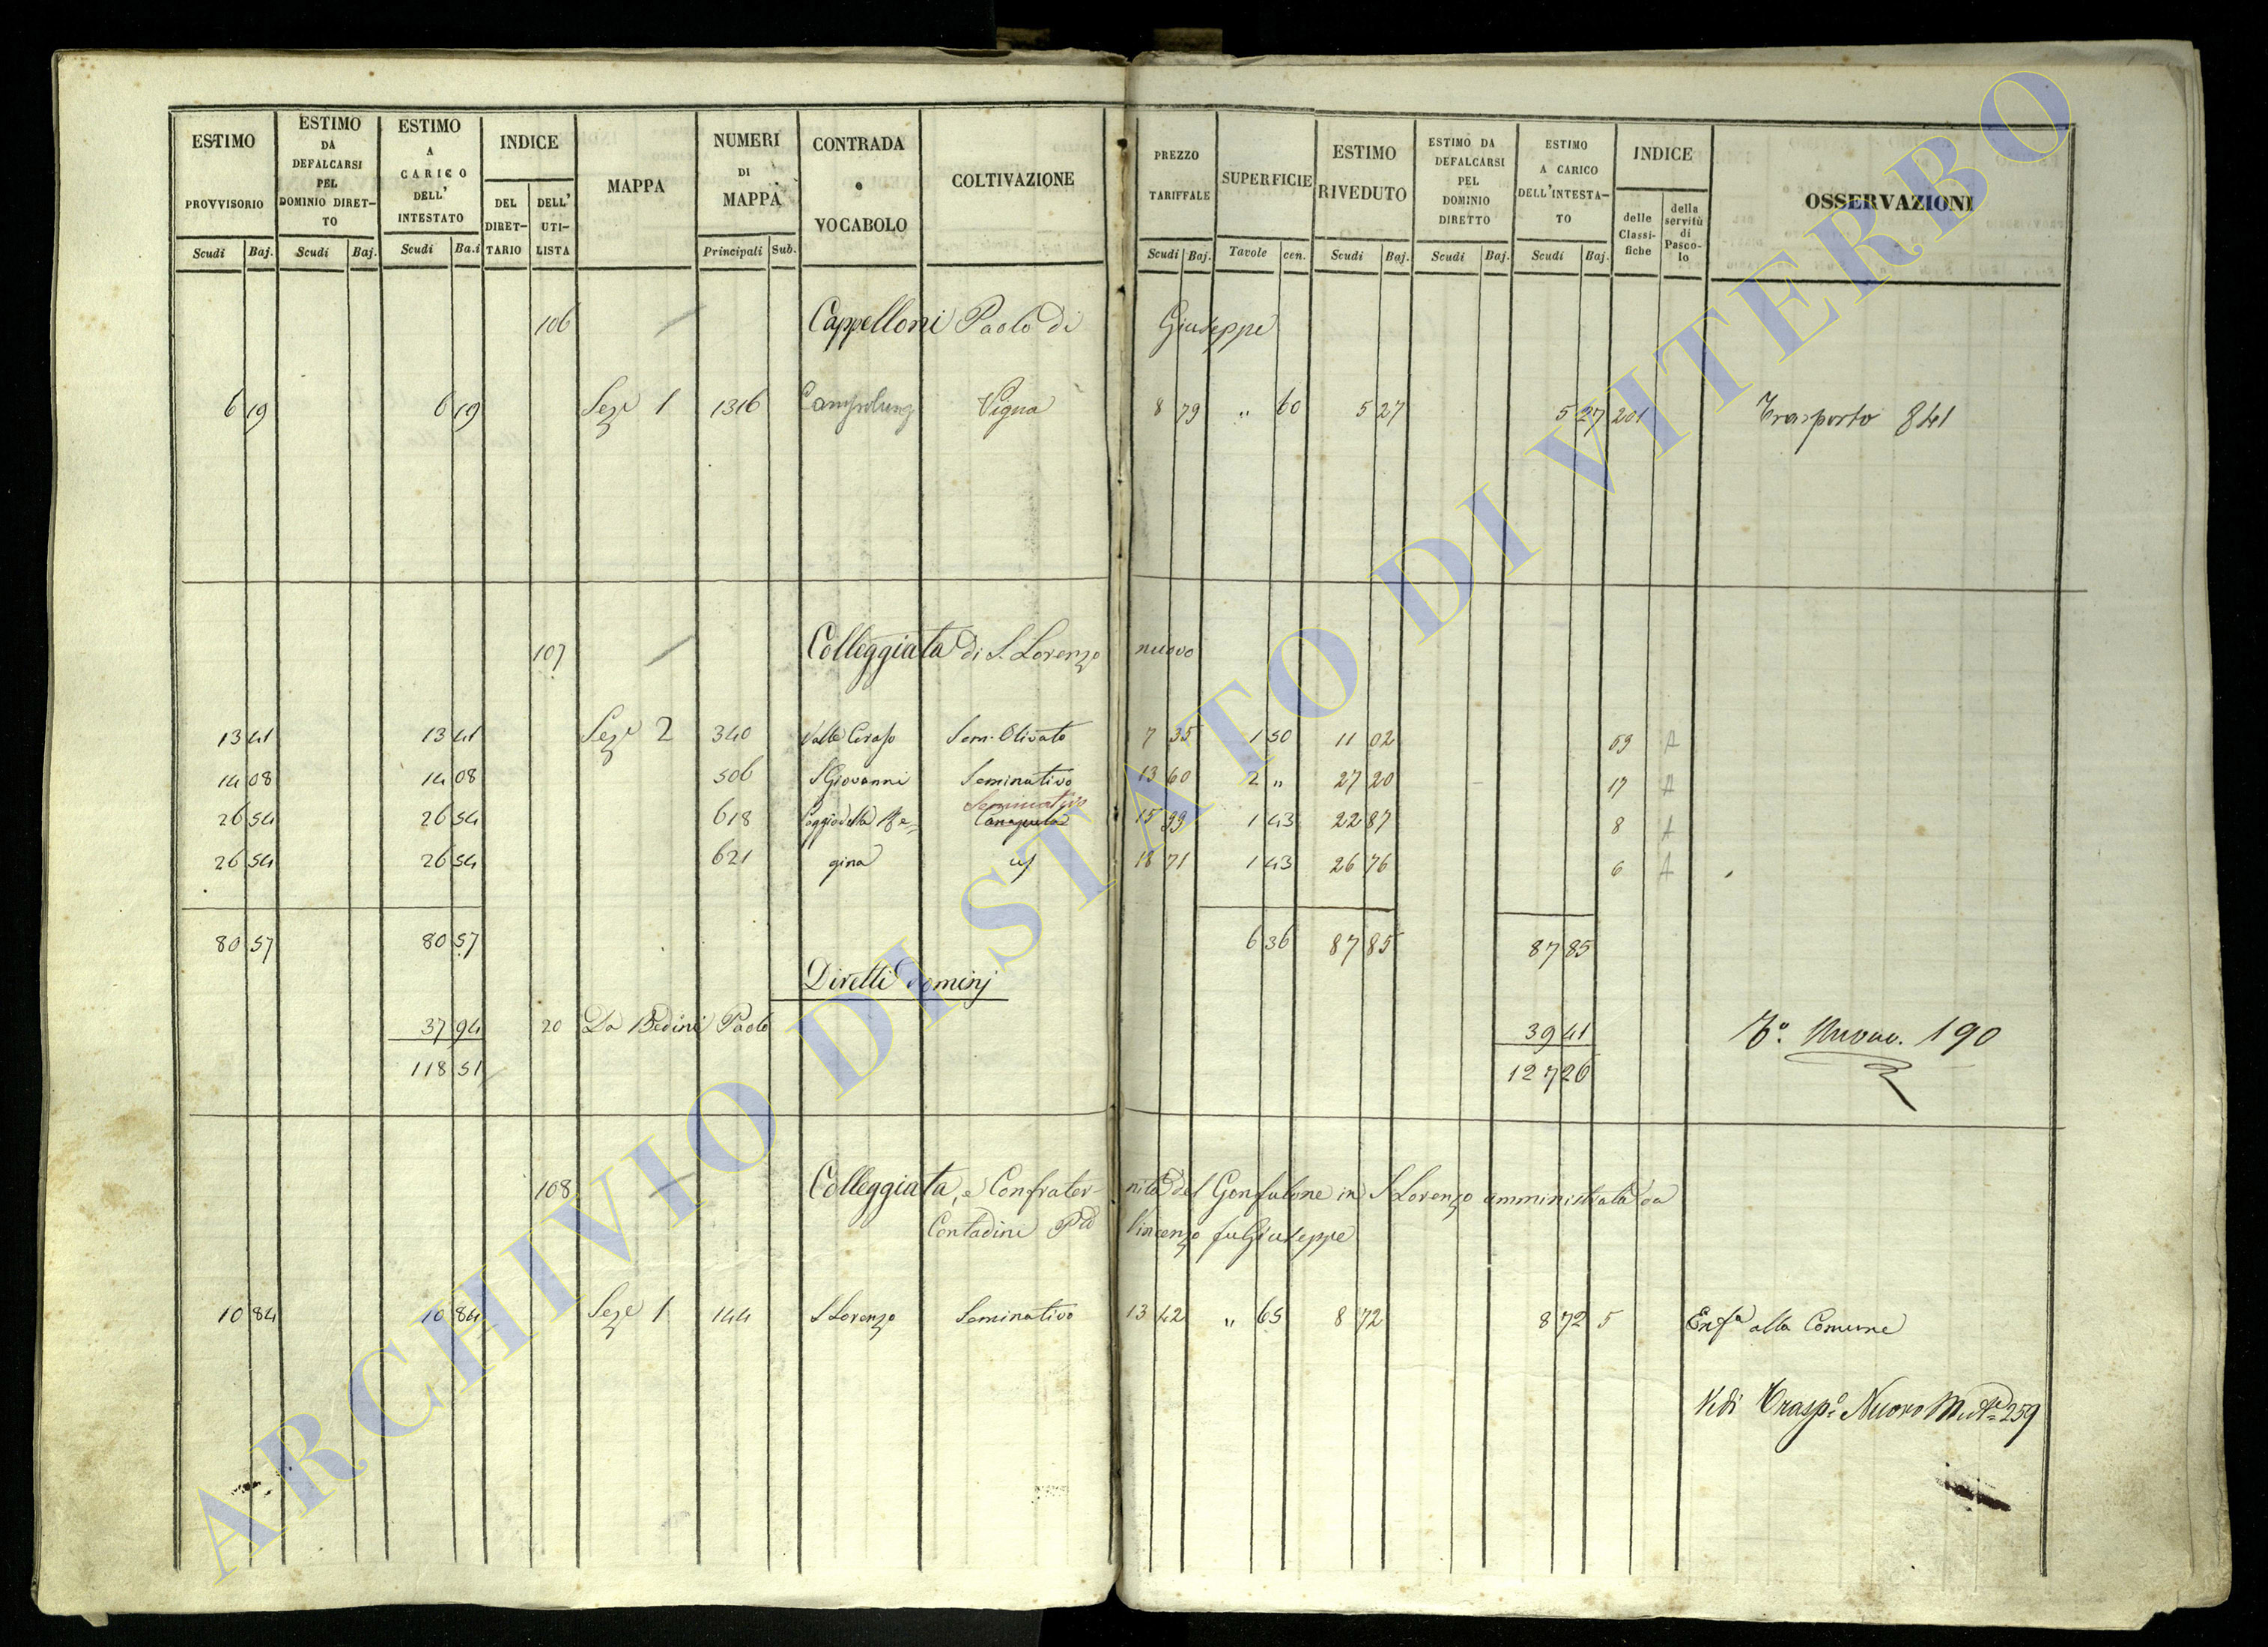 ESTIMO PROVVISORIO Scudi Baj.
ESTIMO DA DEFALCARSI PEL DOMINIO DIRET- TO Scudi Baj.
ESTIMO A CARICO DELL' INTESTATO Scudi Ba.i
INDICE DEL DIRET- TARIO DELL' UTI- LISTA
MAPPA
NUMERI DI MAPPA Principali Sub.
CONTRADA e VOCABOLO
COLTIVAZIONE
PREZZO TARIFFALE Scudi Baj.
SUPERFICIE Tavole cen.
ESTIMO RIVEDUTO Scudi Baj.
ESTIMO DA DEFALCARSI PEL DOMINIO DIRETTO Scudi Baj.
ESTIMO A CARICO DELL'INTESTA- TO Scudi Baj.
INDICE delle Classi- fiche della servitù di Pasco- lo
OSSERVAZIONI
106 Cappelloni Paolo di Giuseppe
6 19 6 19 Seze 1 1316 Vigna 8 79 " 60 5 27 5 27 201 Trasporto 841
107 Colleggiata di S. Lorenzo nuovo
13 41 13 41 Seze 2 340 Valle Ceraso Sem. Olivato 7 35 1 50 11 02 59 A
14 08 14 08 506 S Giovanni Seminativo 13 60 2 " 27 20 17 A
Seminativo
26 54 26 54 618 Poggio della Re= Canapula 15 99 1 43 22 87 8 A
26 54 26 54 621 gina 18 71 1 43 26 76 6 A
80 57 80 57 6 36 87 85 87 85
Diretti Dominj
37 94 20 Da Bedini Paolo 39 41 To. Nuovo. 190
118 51 127 26
108 Colleggiata, e Confrater- nita del Gonfalone in S Lorenzo amministrata da
Contadini Pio Vincenzo fu Giuseppe
10 84 10 84 Seze 1 144 S Lorenzo Seminativo 13 42 " 65 8 72 8 72 5 Enfa alla Comune
Vedi Traspo Nuovo 259
ARCHIVIO DI STATO DI VITERBO